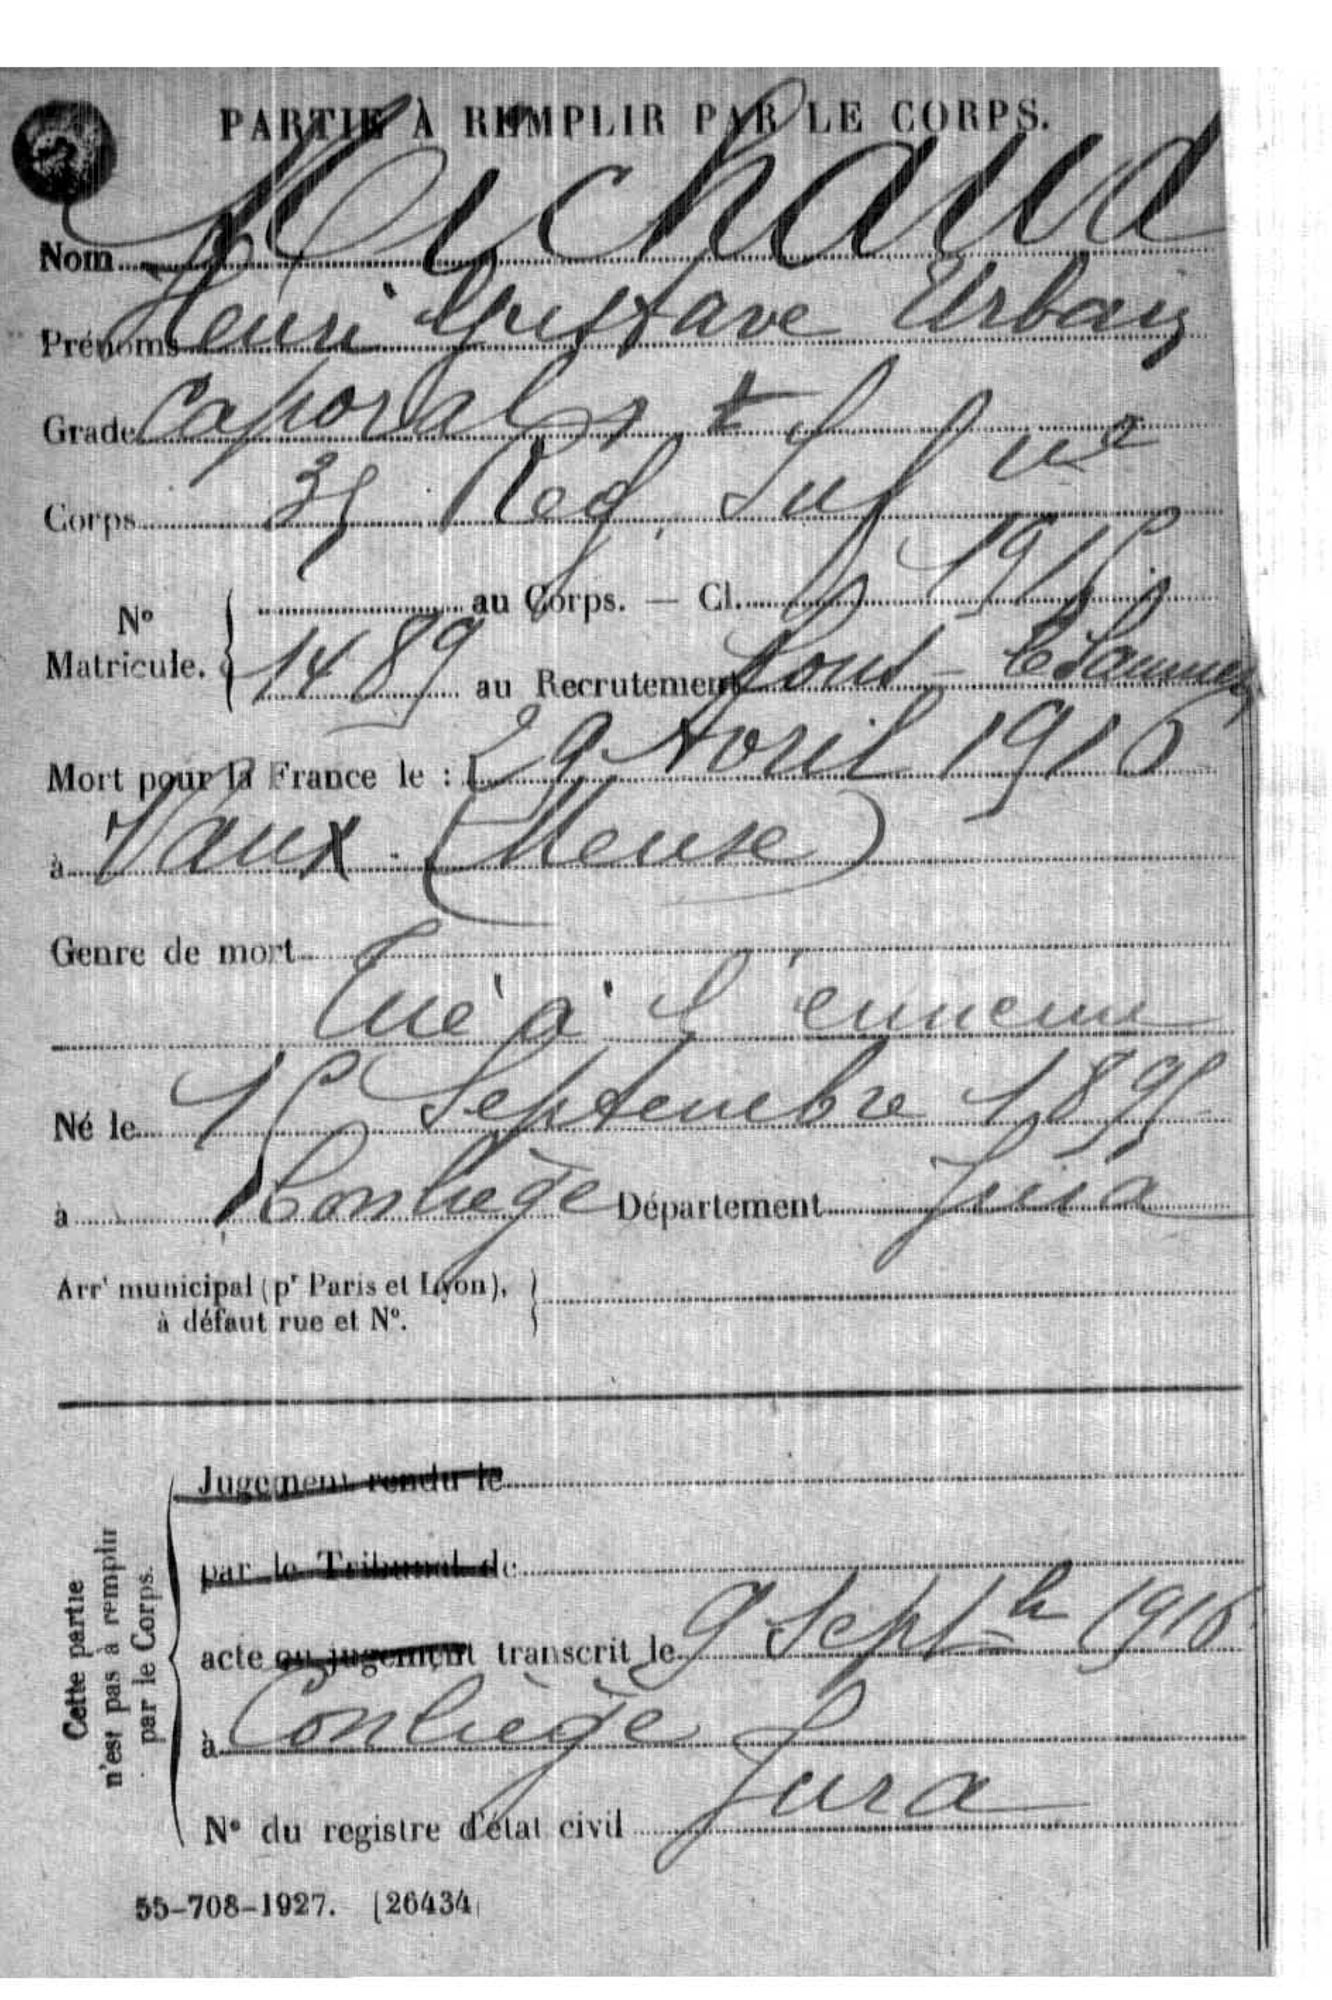 PARTIE À REMPLIR PAR LE CORPS.
Nom Michaud
Prénoms Henri Gustave Urbain
Grade Caporal
Corps 35 Reg. Inf
N° Matricule. { au Corps. — Cl. 1915
1489 au Recrutement Lons-le-Saunier
Mort pour la France le : 29 Avril 1916
à Vaux. (Meuse)
Genre de mort
Tué à l'ennemi
Né le 15 Septembre 1895
à Conliège Département Jura
Arrᵗ municipal (pʳ Paris et Lyon), }
à défaut rue et N°.
Cette partie
n'est pas à remplir
par le Corps.
Jugement rendu le
par le Tribunal de
acte ou jugement transcrit le 9 Septb 1916
à Conliège
Jura
N° du registre d'état civil
55-708-1927. [26434